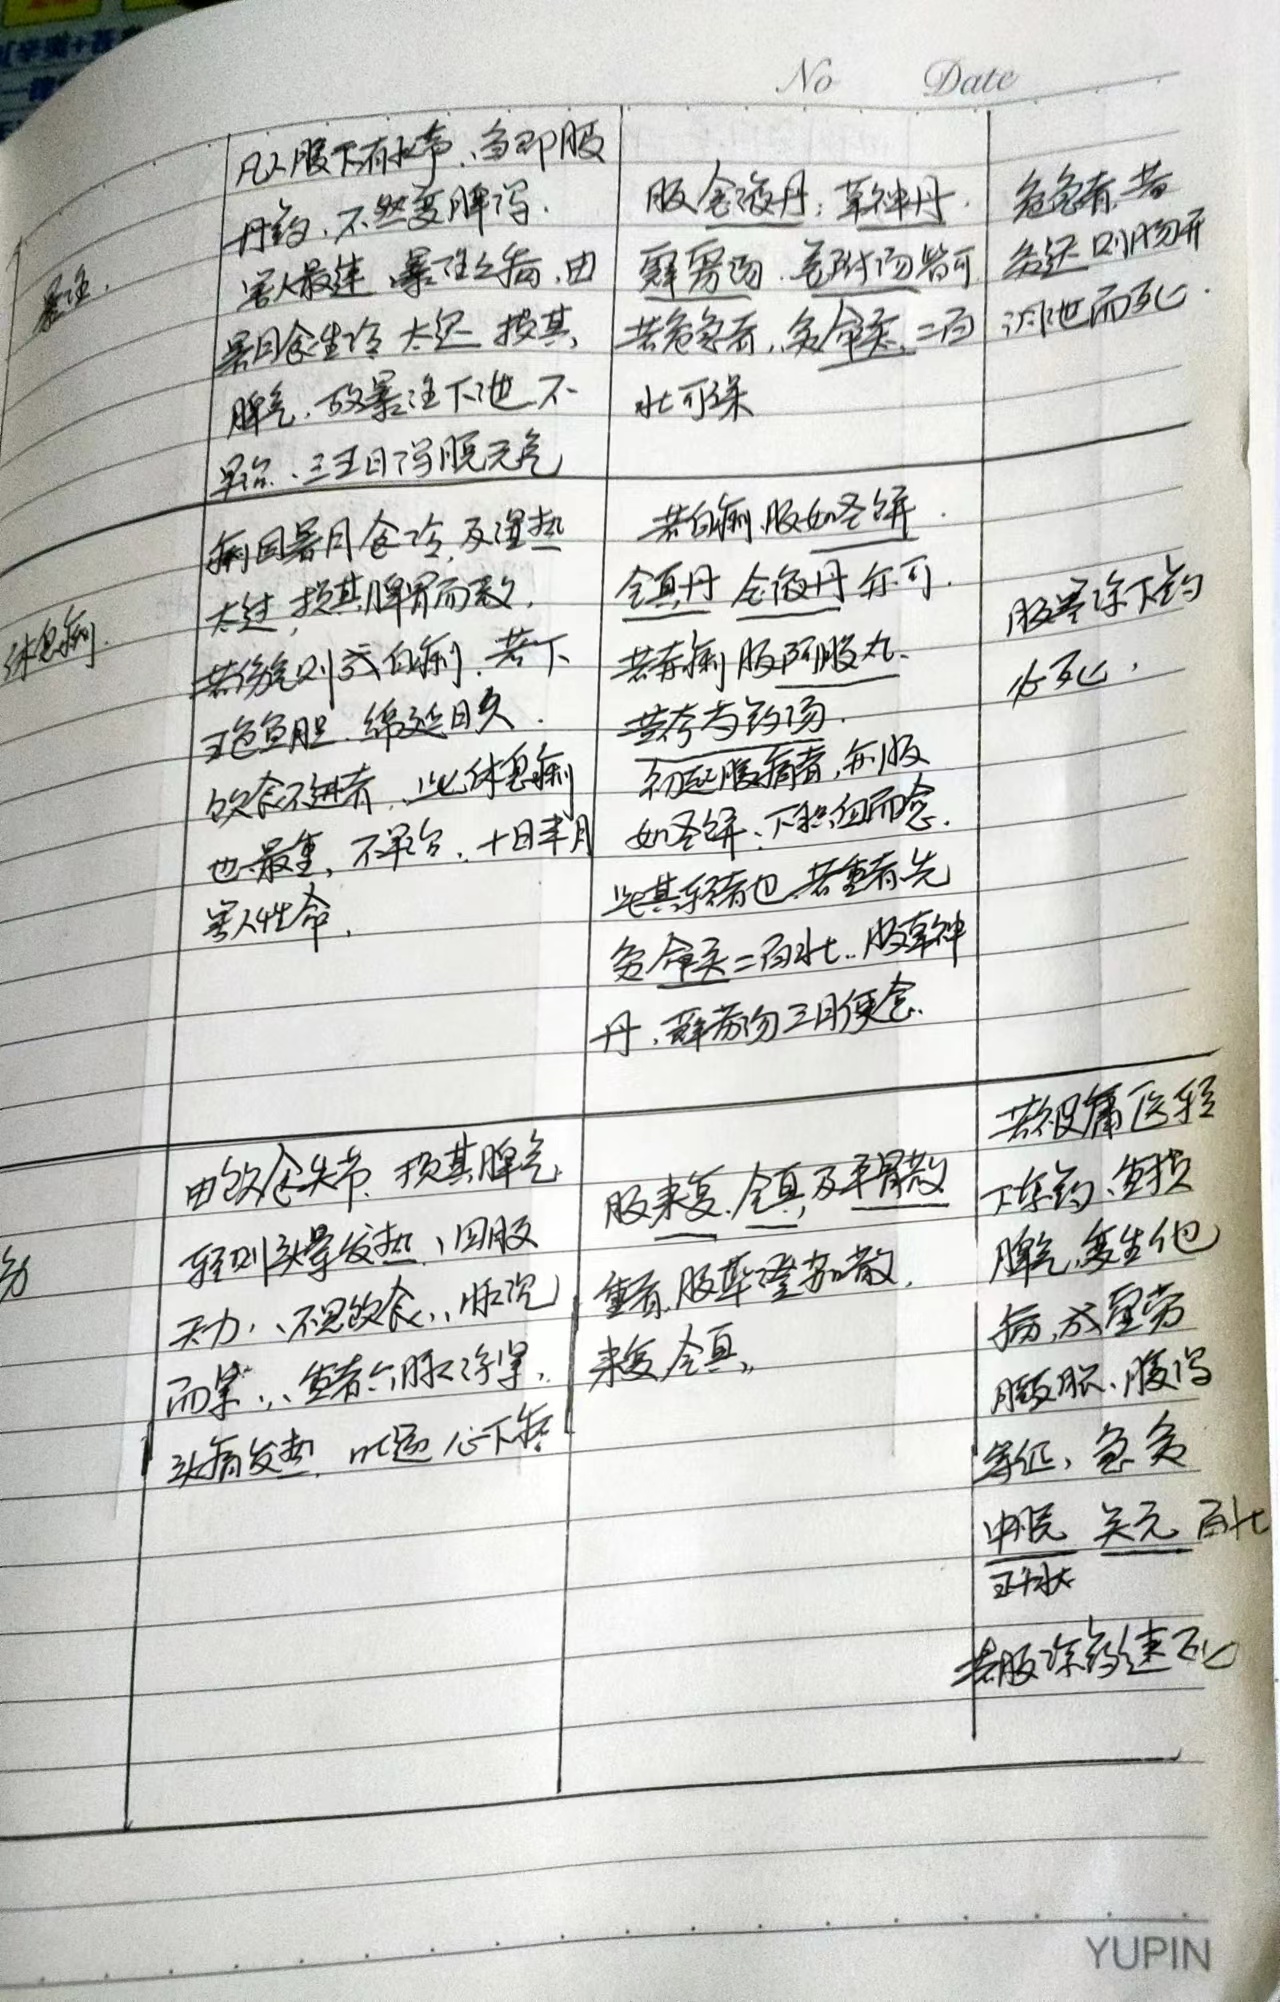 No Date
暴注
凡人腹下有水声,当即服
丹药,不然变脾泻,
害人最速,暴注之病,由
暑月食生冷太过,损其
脾气,故暴注下泄,不
早治,三五日泻脱元气
服金液丹,草神丹,
霹雳汤,姜附汤皆可
若危急者,灸命关,二百
壮可保
危急者,若
灸迟则肠开
洞泄而死.
休息痢
痢因暑月食冷,及湿热
太过,损其脾胃而致,
若伤气则成白痢,若下
五色鱼脑,绵延日久.
饮食不进者,此休息痢
也最重,不早治,十日半月
害人性命,
若白痢服如圣饼.
全真丹 金液丹亦可.
若赤痢服阿胶丸.
芍药汤.
初起腹痛者,亦服
如圣饼,下积血而愈.
此其轻者也,若重者先
灸命关二百壮..服草神
丹,霹雳汤三日便愈.
服署凉下药
必死,
由饮食失节,损其脾气
轻则头晕发热,四肢
无力,不思饮食,脉沉
而紧,重者六脉浮紧,
头痛发热,吐逆心下痞
服来复,全真,及平胃散
重者,服荜澄茄散,
来复,全真,
若被庸医轻
下凉药,重损
脾气,变生他
病,成虚劳
臌胀,腹泻
等证,急灸
中脘 关元 百壮
五十壮
若服凉药速死
YUPIN